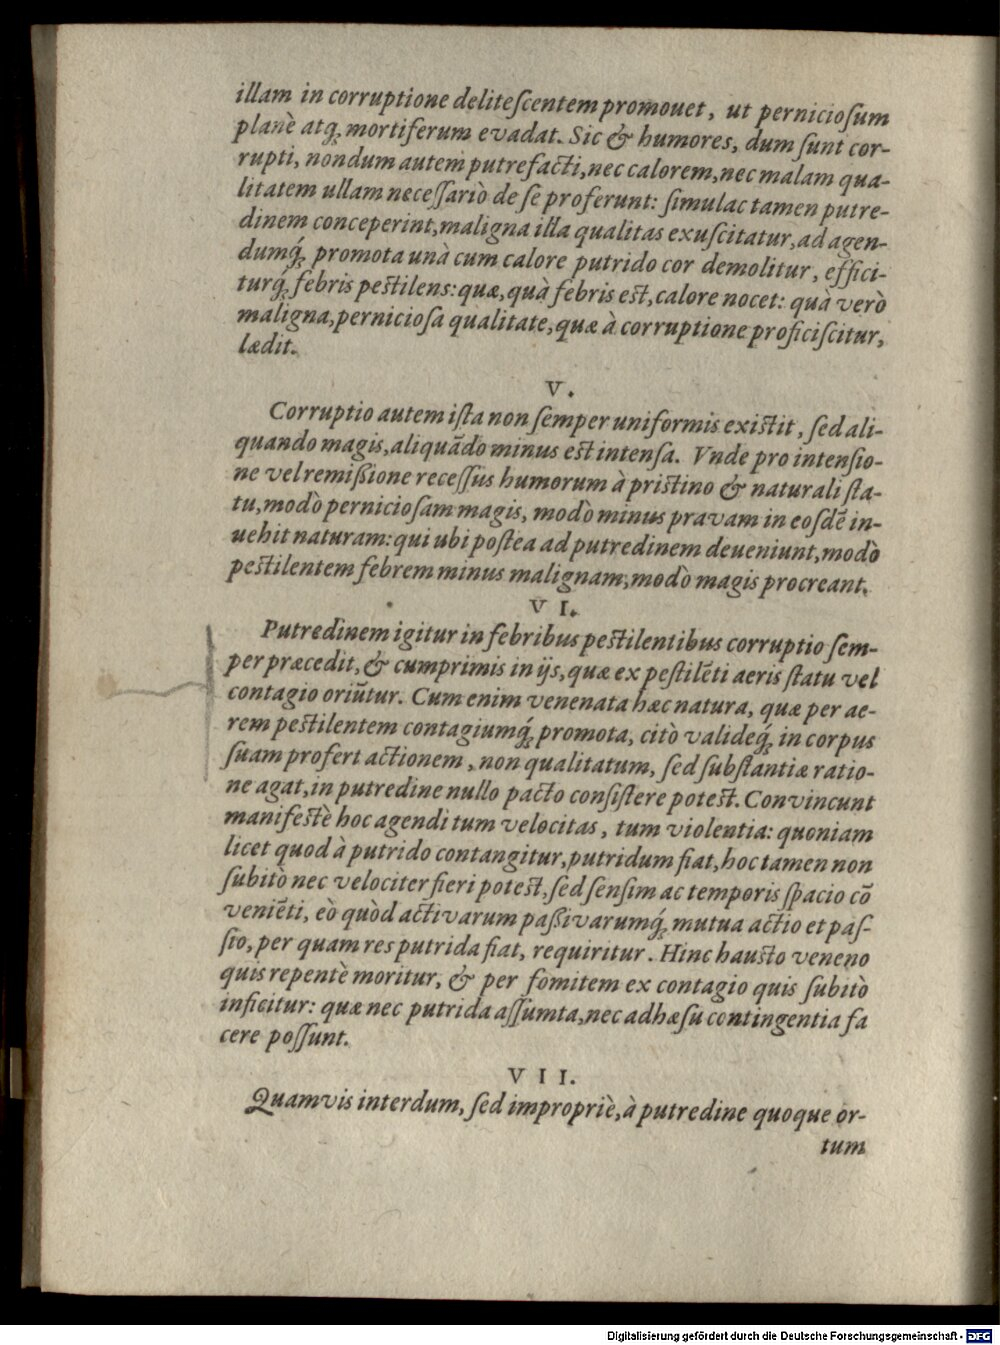 illam in corruptione deliteſcentem promouet, ut pernicioſum
planè atq; mortiferum evadat. Sic & humores, dum ſunt cor-
rupti, nondum autem putrefacti, nec calorem, nec malam qua-
litatem ullam neceſſariò de ſe proferunt: ſimulac tamen putre-
dinem conceperint, maligna illa qualitas exuſcitatur, ad agen-
dumq́; promota unà cum calore putrido cor demolitur, effici-
turq́; febris peſtilens: quæ, quà febris eſt, calore nocet: quà verò
maligna, pernicioſa qualitate, quæ à corruptione proficiſcitur,
lædit.
V.
Corruptio autem iſta non ſemper uniformis exiſtit, ſed ali-
quando magis, aliquãdo minus eſt intenſa. Vnde pro intenſio-
ne vel remißione receſſus humorum à priſtino & naturali ſta-
tu, modò pernicioſam magis, modò minus pravam in eoſdẽ in-
uehit naturam: qui ubi poſtea ad putredinem deueniunt, modò
peſtilentem febrem minus malignam, modò magis procreant.
VI.
Putredinem igitur in febribus peſtilentibus corruptio ſem-
per præcedit, & cumprimis in ijs, quæ ex peſtilẽti aeris ſtatu vel
contagio oriũtur. Cum enim venenata hæc natura, quæ per ae-
rem peſtilentem contagiumq́; promota, citò valideq́; in corpus
ſuam profert actionem, non qualitatum, ſed ſubſtantiæ ratio-
ne agat, in putredine nullo pacto conſiſtere poteſt. Convincunt
manifeſtè hoc agendi tum velocitas, tum violentia: quoniam
licet quod à putrido contangitur, putridum fiat, hoc tamen non
ſubitò nec velociter fieri poteſt, ſed ſenſim ac temporis ſpacio cõ
veniẽti, eò quòd activarum paßivarumq́; mutua actio et paſ-
ſio, per quam res putrida fiat, requiritur. Hinc hauſto veneno
quis repentè moritur, & per fomitem ex contagio quis ſubitò
inficitur: quæ nec putrida aſſumta, nec adhæſu contingentia fa
cere poſſunt.
VII.
Quamvis interdum, ſed impropriè, à putredine quoque or-
tum
Digitalisierung gefördert durch die Deutsche Forschungsgemeinschaft - DFG